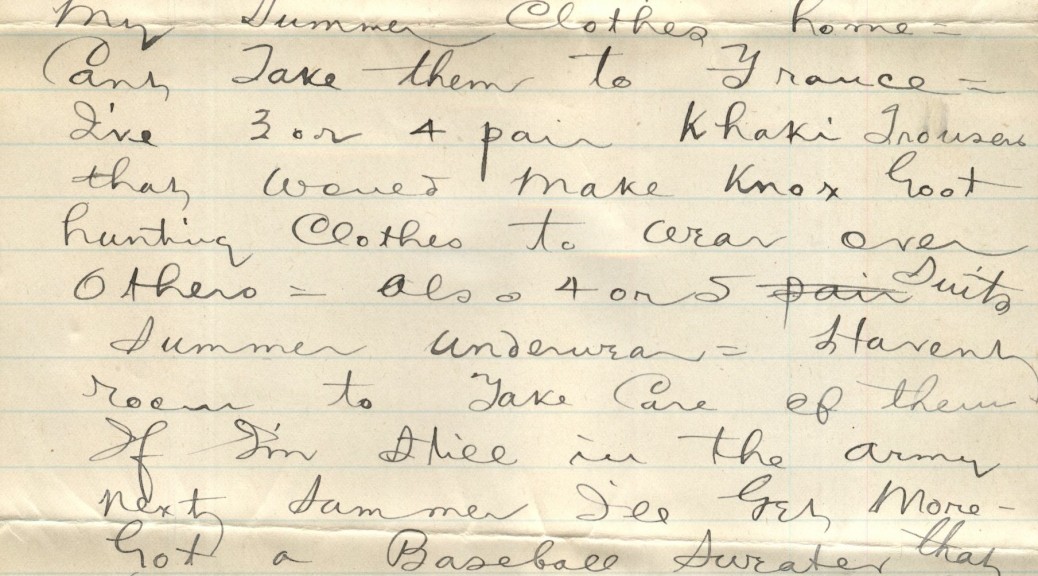 My Summer Clothes home =
Cant Take them to France =
I've 3 or 4 pair Khaki Trousers
that would make Knox Good
hunting Clothes to wear over
Others = also 4 or 5 pair Suits
Summer underwear = Havent
room to Take Care of them
If I'm Still in the army
next summer I'll Get More -
Got a Baseball Sweater that